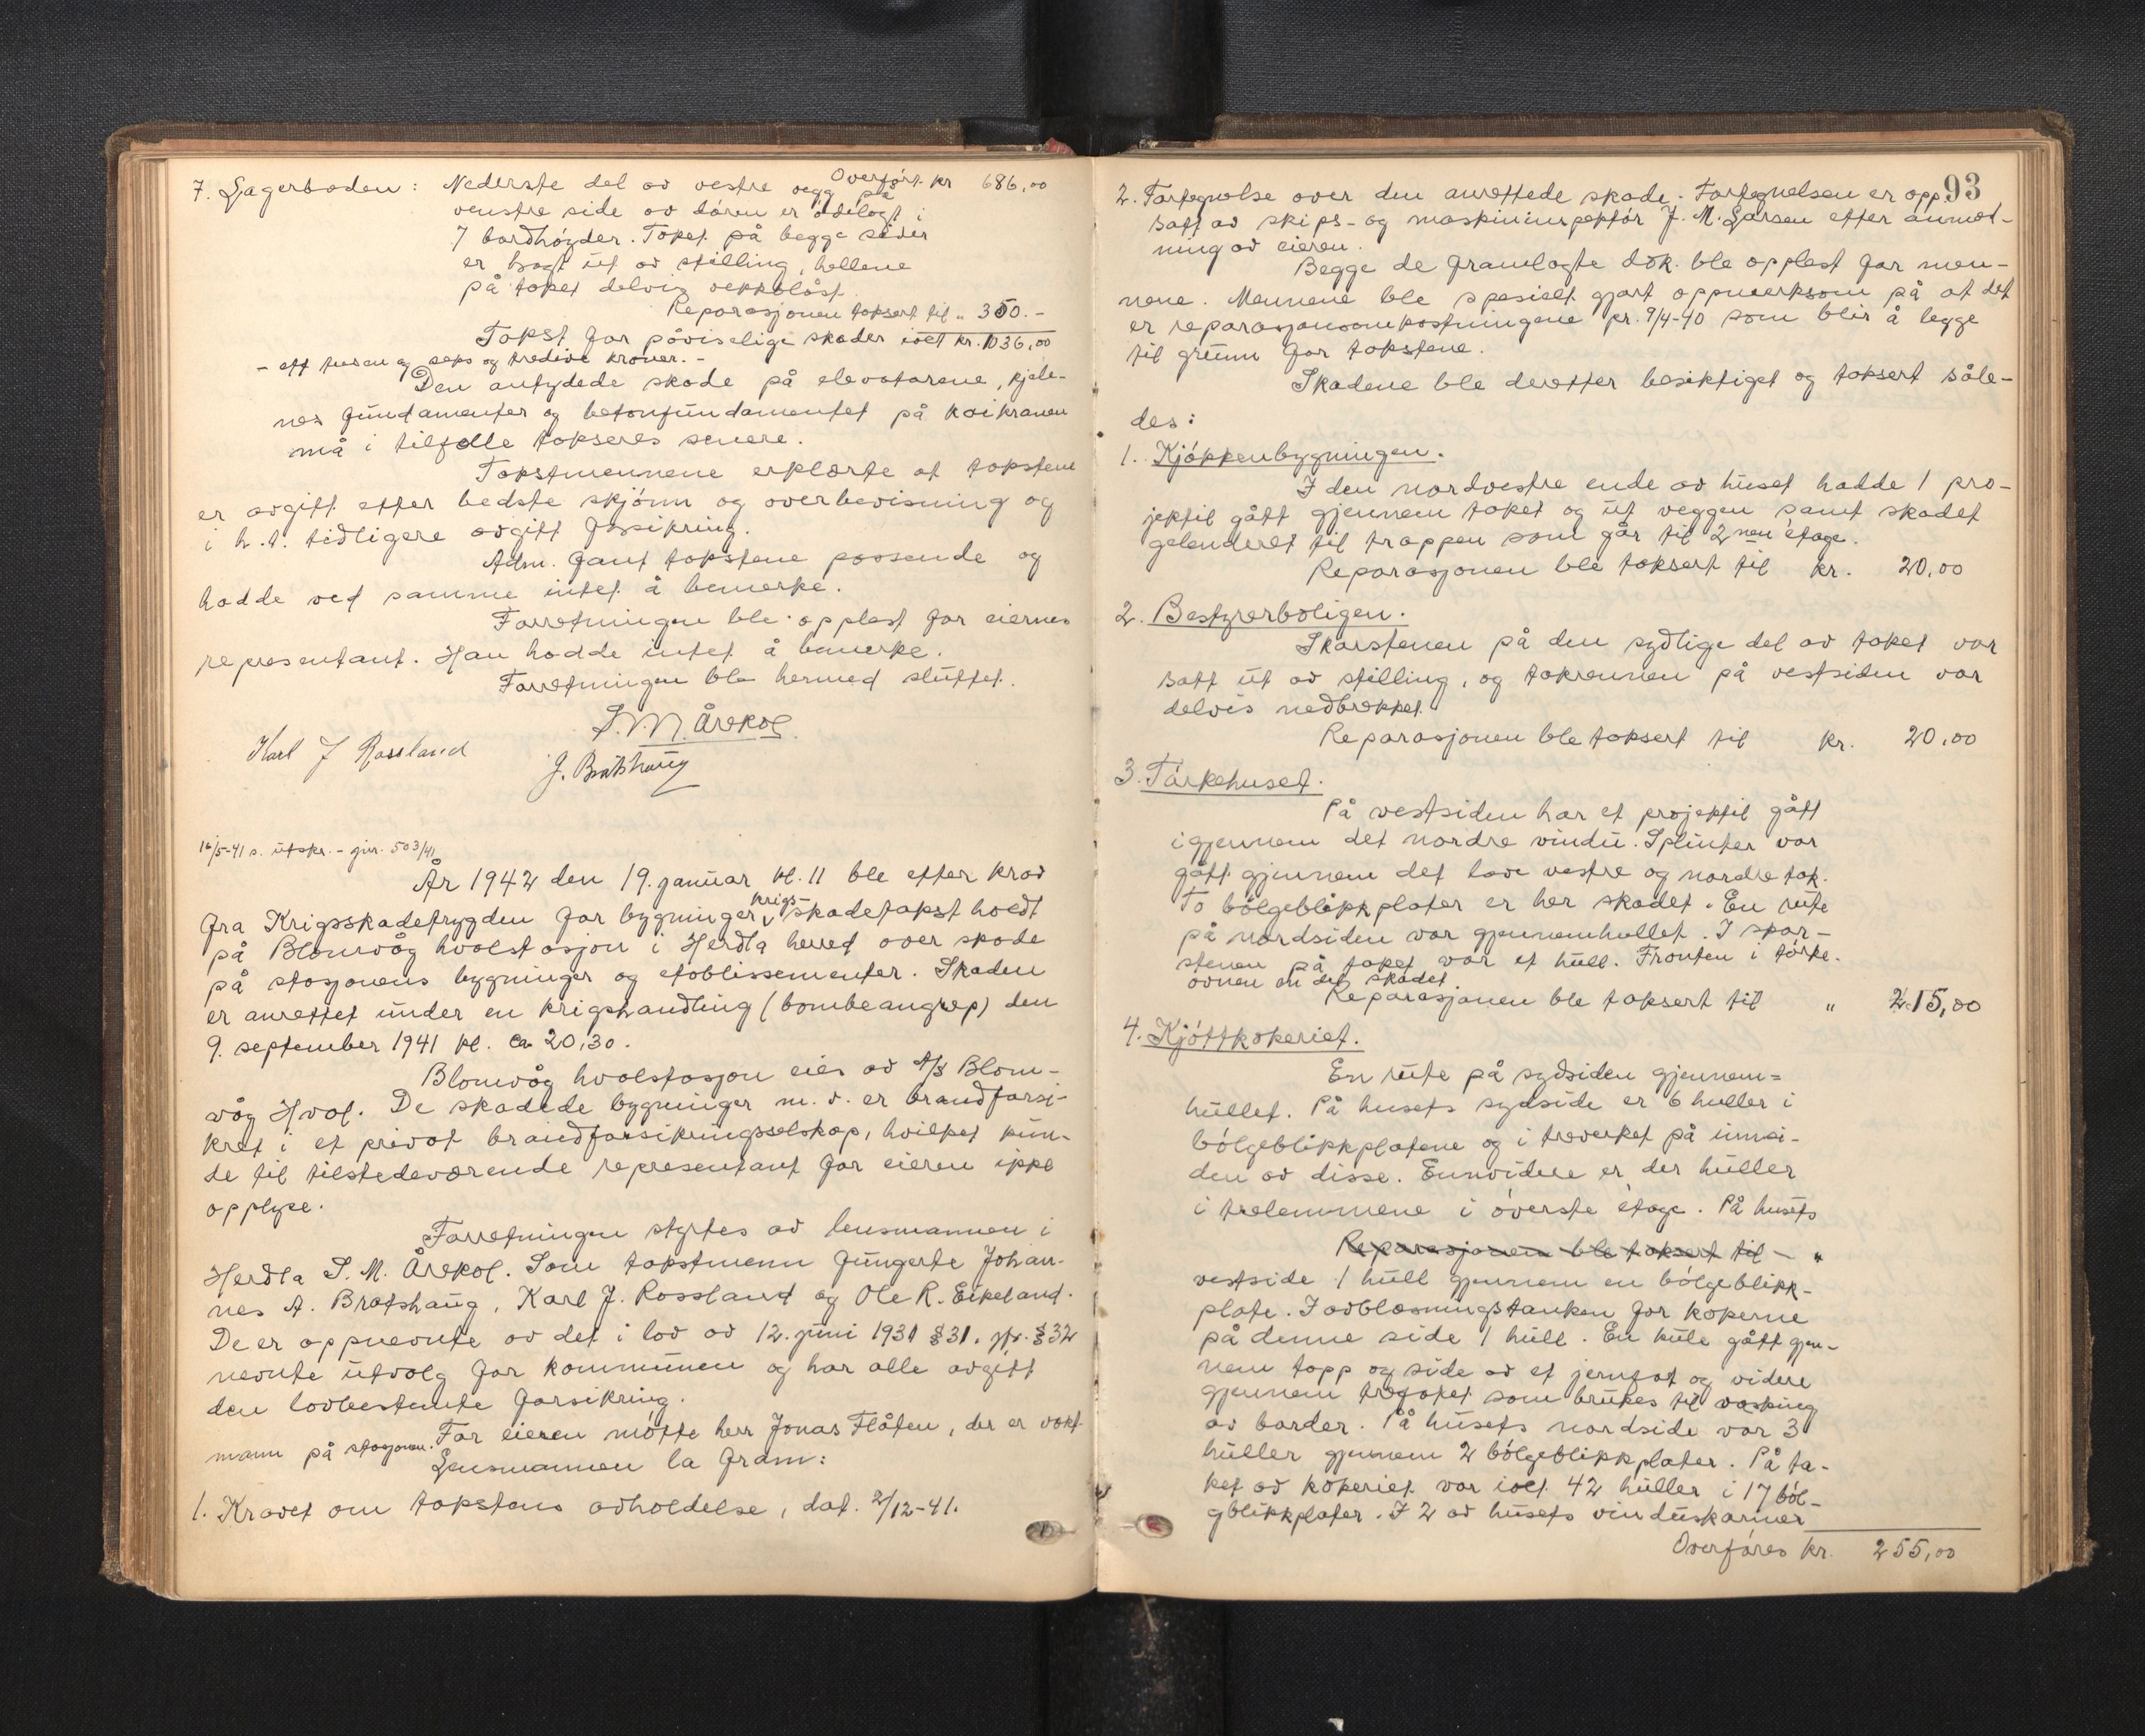 Overført kr 686,00
7. Lagerboden: Nederste del av vestre vegg på
venstre side av døren er ødelagt i
7 bordhøyder. Taket på begge sider
er bragt ut av stilling, hellene
på taket delvis vekkblåst.
Reparasjonen taksert til " 350.-
Takst for påviselige skader ialt kr. 1036,00
- ett tusen og seks og tredive kroner. -
Den antydede skade på elevatorene, kjele-
nes fundamenter og betonfundamentet på kaikranen
må i tilfelle takseres senere.
Takstmennene erklærte at takstene
er avgitt etter bedste skjønn og overbevisning og
i h.t. tidligere avgitt forsikring.
Adm. fant takstene passende og
hadde ved samme intet å bemerke.
Forretningen ble opplest for eiernes
representant. Han hadde intet å bemerke.
Forretningen ble hermed sluttet.
S. M. Årskog
Karl J Rossland J. Bratshaug
16/5-41 s. utskr. - jnr. 503/41
År 1942 den 19. januar kl. 11 ble etter krav
fra Krigsskadetrygden for bygninger krigs-skadetakst holdt
på Blomvåg hvalstasjon i Herdla herred over skade
på stasjonens bygninger og etablissementer. Skaden
er anrettet under en krigshandling (bombeangrep) den
9. september 1941 kl. ca 20,30.
Blomvåg hvalstasjon eies av A/S Blom-
våg Hval. De skadede bygninger m. v. er brandforsi-
kret i et privat brandforsikringsselskap, hvilket kun-
de til tilstedeværende representant for eieren ikke
opplyse.
Forretningen styrtes av lensmannen i
Herdla S. M. Årskog. Som takstmenn fungerte Johan-
nes A. Bratshaug, Karl J. Rossland og Ole R. Eikeland.
De er oppnevnte av det i lov av 12. juni 1931 § 31. jfr. § 32
nevnte utvalg for kommunen og har alle avgitt
den lovbestemte forsikring.
For eieren møtte herr Jonas Flåten, der er vakt-
mann på stasjonen.
Lensmannen la fram:
1. Kravet om takstens avholdelse, dat. 2/12-41.
93
2. Fortegnelse over den anrettede skade. Fortegnelsen er opp-
satt av skips- og maskininspektør J. M. Larsen etter anmod-
ning av eieren.
Begge de framlagte dok. ble opplest for men-
nene. Mennene ble spesielt gjort oppmerksom på at det
er reparasjonsomkostningene pr. 9/4-40 som blir å legge
til grunn for takstene.
Skadene ble deretter besiktiget og taksert såle-
des:
1. Kjøkkenbygningen.
I den nordvestre ende av huset hadde 1 pro-
jektil gått gjennem taket og ut veggen samt skadet
gelenderet til trappen som går til 2nen etage.
Reparasjonen ble taksert til kr. 20,00
2. Bestyrerboligen.
Skorstenen på den sydlige del av taket var
satt ut av stilling, og takrennen på vestsiden var
delvis nedbrekket.
Reparasjonen ble taksert til kr. 20,00
3. Tørkehuset.
På vestsiden har et projektil gått
igjennem det nordre vindu. Splinter var
gått gjennem det lave vestre og nordre tak.
To bølgeblikkplater er her skadet. En rute
på nordsiden var gjennemhullet. I skor-
stenen på taket var et hull. Fronten i tørke-
ovnen en del skadet.
Reparasjonen ble taksert til " 215,00
4. Kjøttkokeriet.
En rute på sydsiden gjennem-
hullet. På husets sydside er 6 huller i
bølgeblikkplatene og i treverket på innsi-
den av disse. Ennvidere er der huller
i trelemmene i øverste etage. På husets
Reparasjonen ble taksert til - "
vestside 1 hull gjennem en bølgeblikk-
plate. I avblæsningstanken for kokerne
på denne side 1 hull. En kule gått gjen-
nem topp og side av et jernfat og videre
gjennem trefatet som brukes til vasking
av barder. På husets nordside var 3
huller gjennem 2 bølgeblikkplater. På ta-
ket av kokeriet var ialt 42 huller i 17 bøl-
geblikkplater. I 2 av husets vinduskarmer
Overføres kr. 255,00